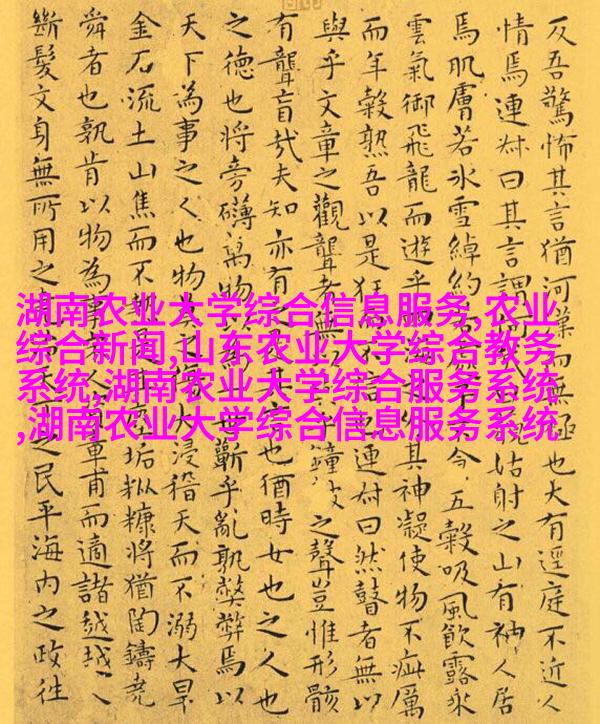 反吾驚怖其言猶河漢而無極也大有逕庭不近人
情焉連叔曰其言謂何哉姑射之山有神人居
焉肌膚若冰雪綽約五穀吸風飲露乘
雲氣御飛龍而遊乎其神凝使物不疵厲
而年穀熟吾以是狂言連叔曰然瞽者無以
與乎文章之觀聾者無以乎鐘之聲豈惟形骸
有聾盲哉夫知亦有之其言也猶時女也之人也
之德也將旁礴萬物以世蘄乎亂孰弊弊焉以
天下為事之人也物莫之傷大浸稽天而不溺大旱
金石流土山焦而不垢粃糠將猶陶鑄堯
舜者也孰肯以物為事人章甫而適諸越越人
斷髮文身無所用之堯天之民平海內之政往
湖南农业大学综合信息服务,农业
综合新闻,山东农业大学综合教务
系统,湖南农业大学综合服务系统
,湖南农业大学综合信息服务系统